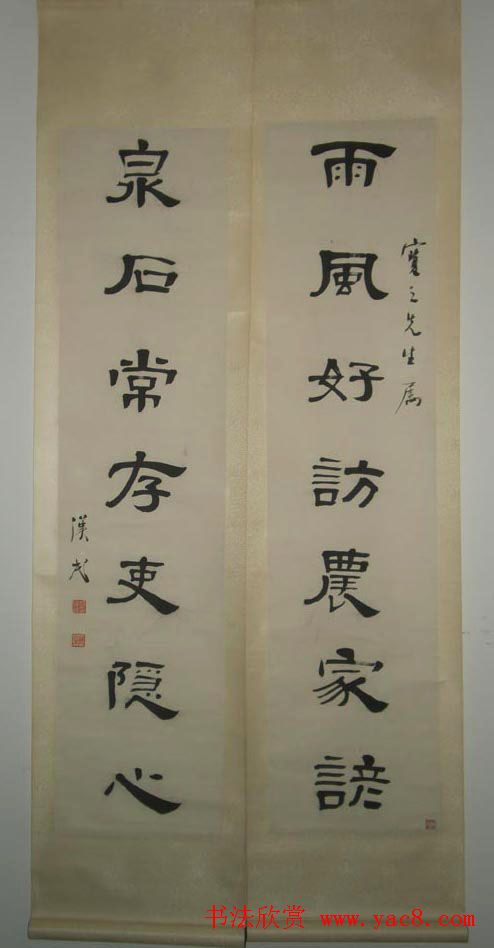 雨風好訪農家諺
寳之先生属
泉石常存吏隐心
漢民
书法欣赏 www.yac8.com